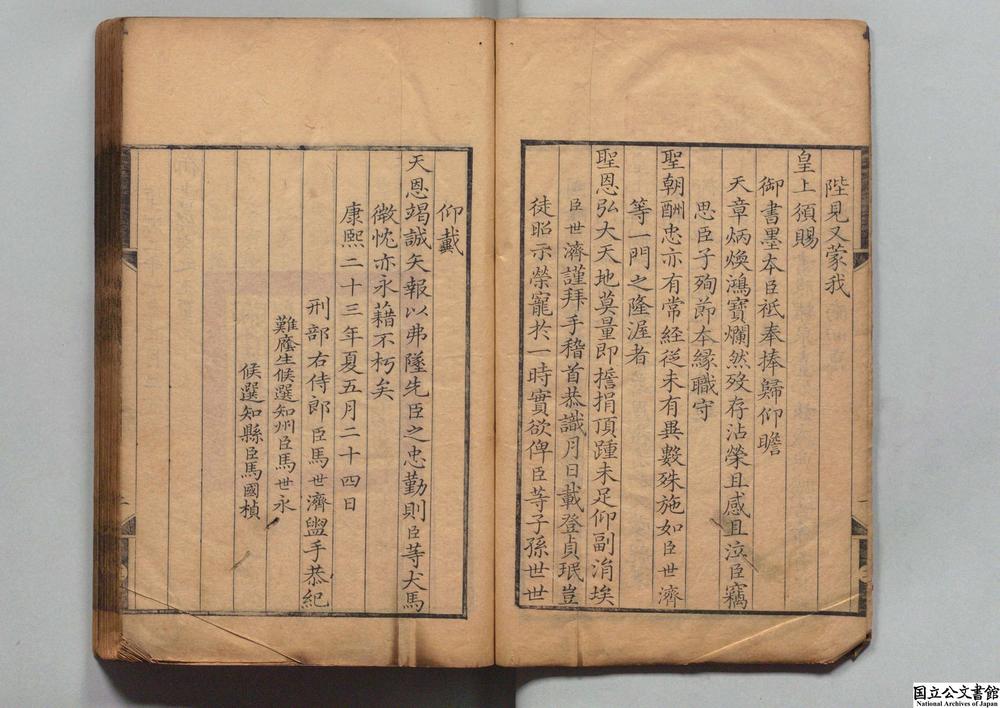 陛見又蒙我
皇上湏賜
御書墨夲臣祗奉捧歸仰瞻
天章炳煥鴻寶爛然歿存沾榮且感且泣臣竊
思臣子殉節本縁職守
聖朝酬忠亦有常經從未有異數殊施如臣世濟
等一門之隆渥者
聖恩弘大天地莫量即捨捐頂踵未足仰副涓埃
臣世濟謹拜手稽首恭識月日載登貞珉豈
徒昭示榮寵扵一時實欲俾臣等子孫世世
仰戴
天恩竭誠矢報以弗墜先臣之忠勤則臣等犬馬
微忱亦永藉不朽矣
康熙二十三年夏五月二十四日
刑部右侍郎臣馬世濟盥手恭紀
難廕生候選知州臣馬世永
候選知縣臣馬國楨
国立公文書館
National Archives of Japan